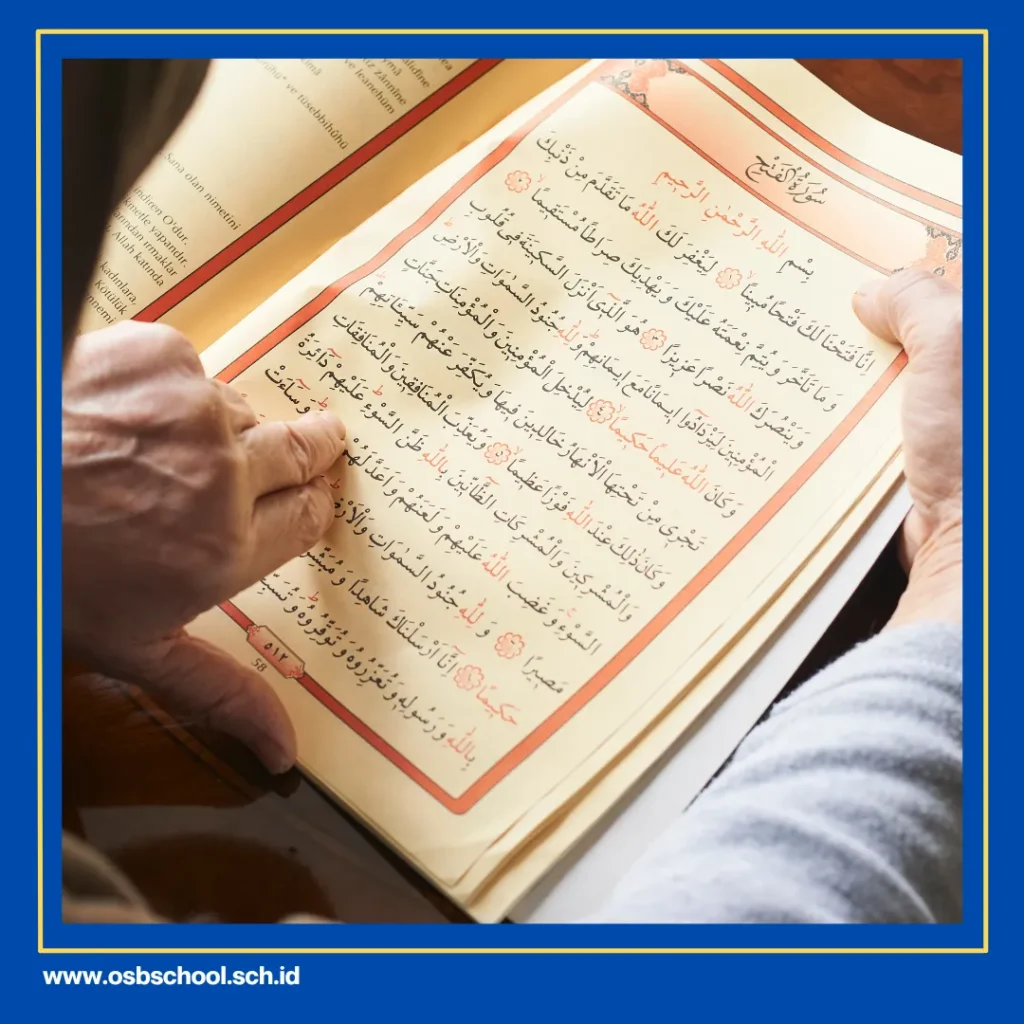 سُورَةُ الْفَتْحِ
بِسْمِ اللّٰهِ الرَّحْمٰنِ الرَّحِيمِ
اِنَّا فَتَحْنَا لَكَ فَتْحًا مُبِينًا لِيَغْفِرَ لَكَ اللّٰهُ مَا تَقَدَّمَ مِنْ ذَنْبِكَ
وَمَا تَاَخَّرَ وَيُتِمَّ نِعْمَتَهُ عَلَيْكَ وَيَهْدِيَكَ صِرَاطًا مُسْتَقِيمًا
وَيَنْصُرَكَ اللّٰهُ نَصْرًا عَزِيزًا هُوَ الَّذِى اَنْزَلَ السَّكِينَةَ فِى قُلُوبِ
الْمُؤْمِنِينَ لِيَزْدَادُوا اِيمَانًا مَعَ اِيمَانِهِمْ وَلِلّٰهِ جُنُودُ السَّمٰوَاتِ وَالْاَرْضِ
وَكَانَ اللّٰهُ عَلِيمًا حَكِيمًا لِيُدْخِلَ الْمُؤْمِنِينَ وَالْمُؤْمِنَاتِ جَنَّاتٍ
تَجْرِى مِنْ تَحْتِهَا الْاَنْهَارُ خَالِدِينَ فِيهَا وَيُكَفِّرَ عَنْهُمْ سَيِّـَٔاتِهِمْ
وَكَانَ ذٰلِكَ عِنْدَ اللّٰهِ فَوْزًا عَظِيمًا وَيُعَذِّبَ الْمُنَافِقِينَ وَالْمُنَافِقَاتِ
وَالْمُشْرِكِينَ وَالْمُشْرِكَاتِ الظَّانِّينَ بِاللّٰهِ ظَنَّ السَّوْءِ عَلَيْهِمْ دَائِرَةُ
السَّوْءِ وَغَضِبَ اللّٰهُ عَلَيْهِمْ وَلَعَنَهُمْ وَاَعَدَّ لَهُمْ وَسَاءَتْ
مَصِيرًا وَلِلّٰهِ جُنُودُ السَّمٰوَاتِ وَالْاَرْضِ
حَكِيمًا اِنَّا اَرْسَلْنَاكَ شَاهِدًا وَمُبَشِّرًا
بِاللّٰهِ وَرَسُولِهِ وَتُعَزِّرُوهُ وَتُوَقِّرُوهُ
٥١٢
ve leanehüm
ve tüsebbihûhü
Sana olan nimetini
indiren O'dur.
yapandır.
ırmaklar
Allah katında
kadınlara,
Kötülük
www.osbschool.sch.id